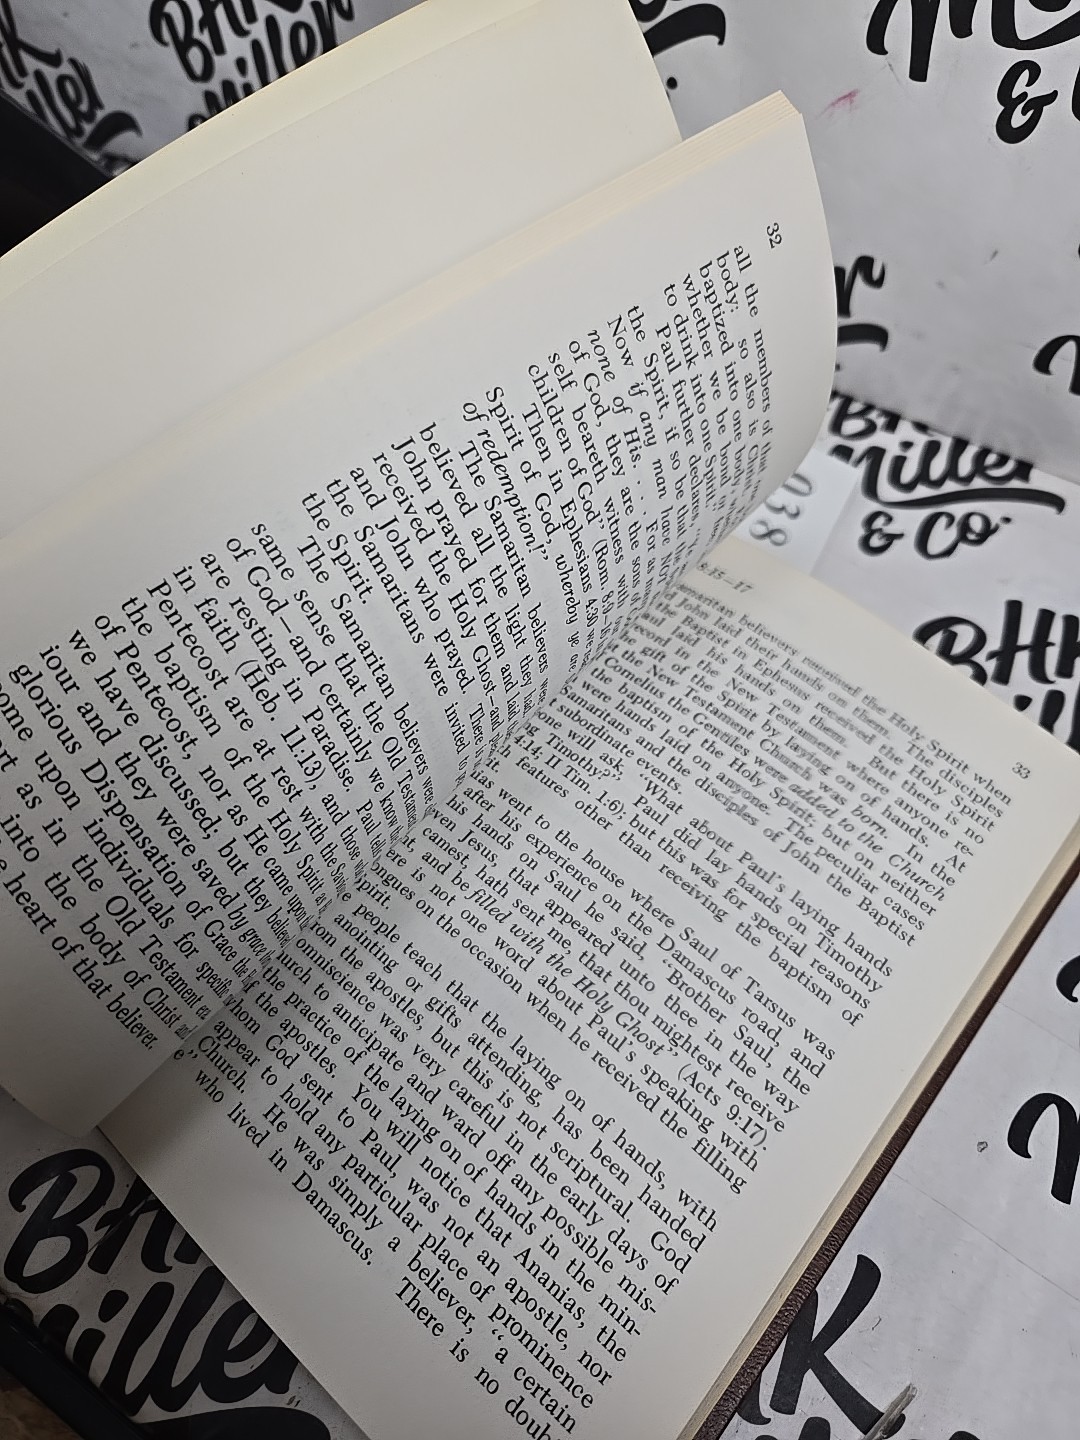 32
all the members of that
body: so also is Christ
baptized into one body
whether we be bond or
to drink into one Spirit
Paul further declares,
the Spirit, if so be that the
Now if any man have NOT
none of His. . . . For as
of God, they are the sons of
self beareth witness with
children of God" (Rom. 8:9
Then in Ephesians 4:30 we
Spirit of God, whereby ye are
of redemption!"
The Samaritan believers were
believed all the light they had
John prayed for them and laid
received the Holy Ghost—and
and John who prayed. There
the Samaritans were invited to
the Spirit.
The Samaritan believers were
same sense that the Old Testament
of God—and certainly we know
are resting in Paradise. Paul tells
in faith (Heb. 11:13), and those
Pentecost are at rest with the
the baptism of the Holy Spirit as
of Pentecost, nor as He came upon
we have discussed; but they
iour and they were saved by grace
glorious Dispensation of Grace the
come upon individuals for specific
as in the Old Testament era.
into the body of Christ and
heart of that believer.
33
8:15—17
Samaritan believers received the Holy Spirit when
John laid their hands on them. The disciples
the Baptist in Ephesus received the Holy Spirit
laid his hands on them. But there is no
record in the New Testament where anyone re-
gift of the Spirit by laying on of hands. At
the New Testament Church was born. In the
Cornelius the Gentiles were added to the Church
the baptism of the Holy Spirit; but on neither
were hands laid on anyone. The peculiar cases
Samaritans and the disciples of John the Baptist
subordinate events.
one will ask, "What about Paul's laying hands
Timothy?" Paul did lay hands on Timothy
4:14, II Tim. 1:6); but this was for special reasons
features other than receiving the baptism of
went to the house where Saul of Tarsus was
after his experience on the Damascus road, and
his hands on Saul he said, "Brother Saul, the
even Jesus, that appeared unto thee in the way
camest, hath sent me, that thou mightest receive
and be filled with the Holy Ghost" (Acts 9:17).
there is not one word about Paul's speaking with
tongues on the occasion when he received the filling
people teach that the laying on of hands, with
anointing or gifts attending, has been handed
from the apostles, but this is not scriptural. God
omniscience was very careful in the early days of
church to anticipate and ward off any possible mis-
the practice of the laying on of hands in the min-
the apostles. You will notice that Ananias, the
whom God sent to Paul, was not an apostle, nor
appear to hold any particular place of prominence
Church. He was simply a believer, "a certain
who lived in Damascus. There is no doubt
038
BHK
Miller
& CO.